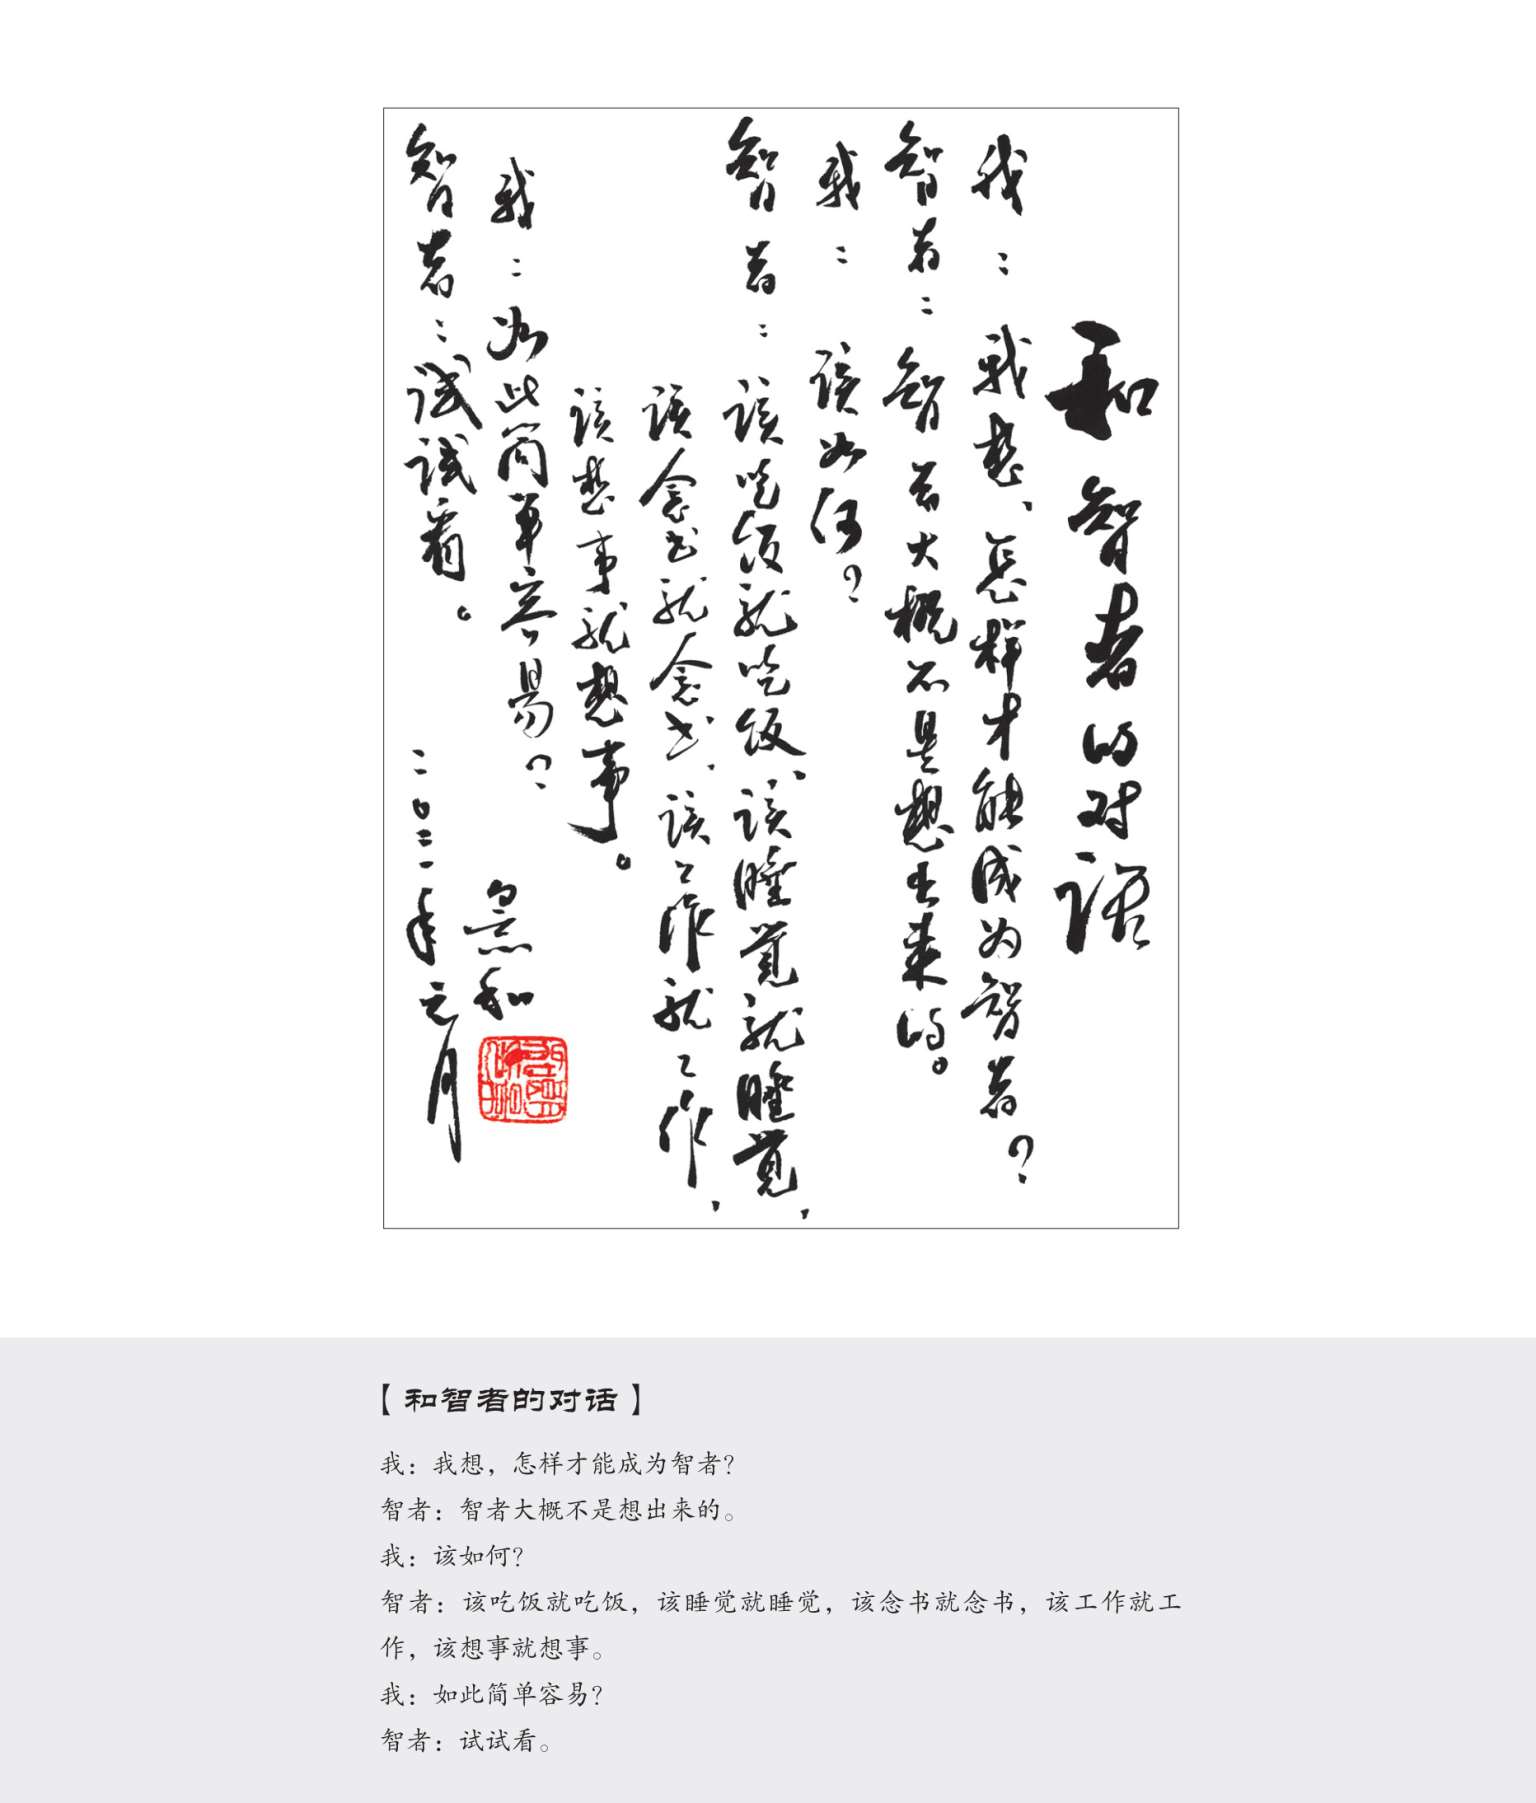 和智者的对话
我：我想、怎样才能成为智者？
智者：智者大概不是想出来的。
我：该如何？
智者：该吃饭就吃饭、该睡觉就睡觉，
该念书就念书，该工作就工作，
该想事就想事。
我：如此简单容易？
智者：试试看。
景和
二〇二一年元月
【和智者的对话】
我：我想，怎样才能成为智者？
智者：智者大概不是想出来的。
我：该如何？
智者：该吃饭就吃饭，该睡觉就睡觉，该念书就念书，该工作就工
作，该想事就想事。
我：如此简单容易？
智者：试试看。